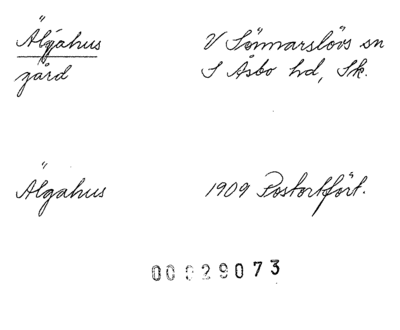 Älgahus V Sönnarslövs sn
gård S Åsbo hd, Sk.
Älgahus 1909 Postortfört.
00029073